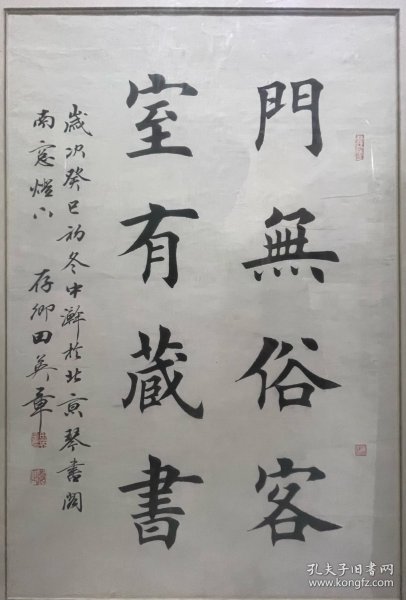 門無俗客
室有蔵書
歲次癸巳初冬中澣於北京琴書閣
南窓燈下 存卿田英章
孔夫子旧书网
www.kongfz.com